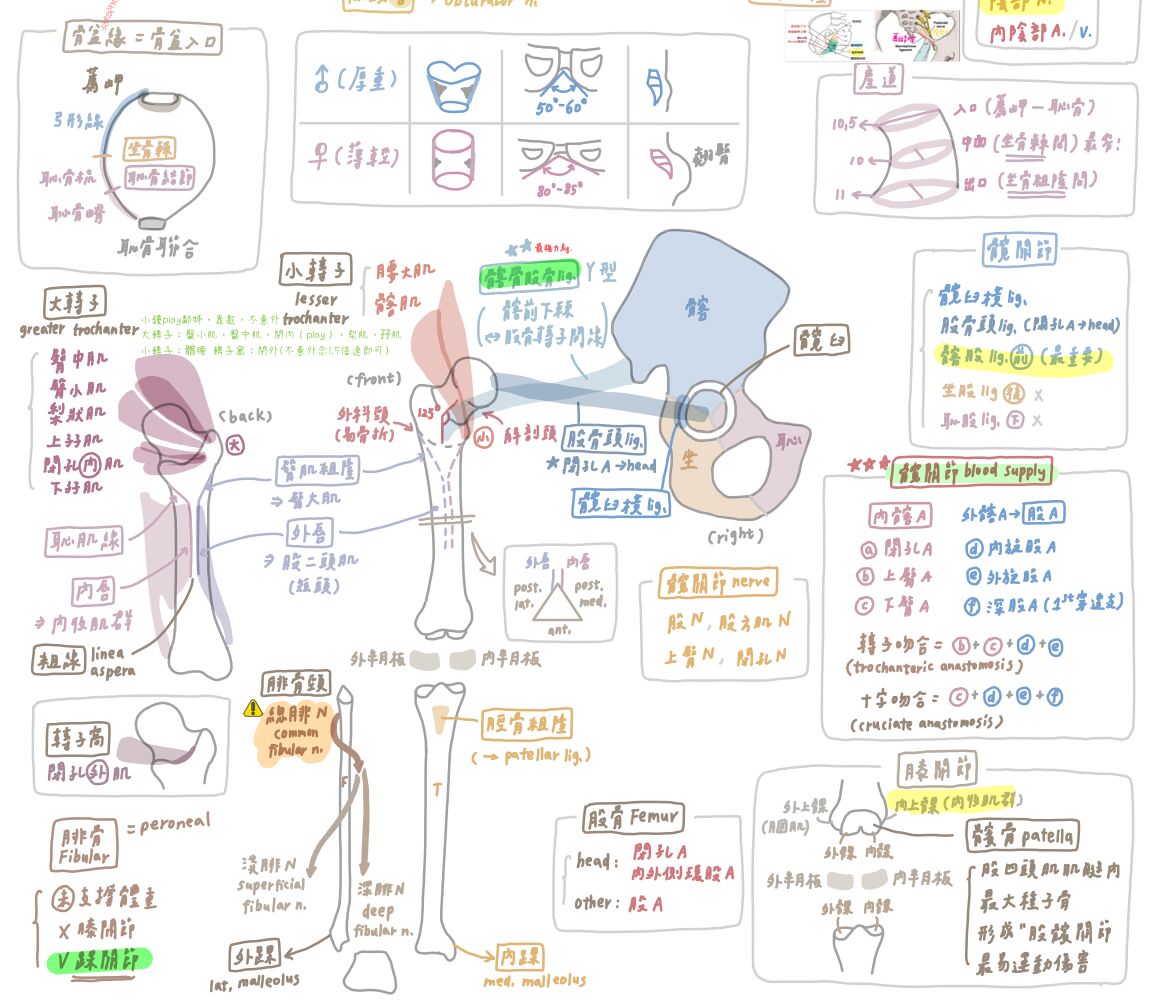 obturator n.
陰部 N.
內陰部 A./V.
骨盆緣 = 骨盆入口
薦岬
弓形線
坐骨棘
恥骨梳
恥骨結節
恥骨嵴
恥骨聯合
♂ (厚重)
50°-60°
♀ (薄輕)
80°-85°
翹臀
產道
10.5
入口 (薦岬－恥骨)
10
中面 (坐骨棘間) 最窄!
11
出口 (坐骨粗隆間)
大轉子
greater trochanter
臀中肌
臀小肌
梨狀肌
上孖肌
閉孔內肌
下孖肌
(back)
大
小轉子
lesser
trochanter
腰大肌
髂肌
大轉子：臀小肌，臀中肌，閉內（play），梨肌，孖肌
(front)
125°
外科頸
(易骨折)
小
解剖頸
最強力lig.
髂骨股骨lig. Y型
髂前下棘
(↔股骨轉子間線)
髂
恥
坐
髖臼
(right)
股骨頭lig.
★閉孔A→head
髖臼橫lig.
髖關節
髖臼橫lig.
股骨頭lig. (閉孔A→head)
髂股lig. 前 (最重要)
坐股lig 後 x
恥股lig. 下 x
臀肌粗隆
⇒ 臀大肌
外唇
⇒ 股二頭肌
(短頭)
恥肌線
內唇
⇒ 內收肌群
粗線 linea
aspera
外唇 內唇
post. lat.
post. med.
ant.
外半月板 內半月板
髖關節 nerve
股N, 股方肌N
上臀N, 閉孔N
★★★ 髖關節 blood supply
內髂A
ⓐ 閉孔A
ⓑ 上臀A
ⓒ 下臀A
外髂A→股A
ⓓ 內旋股A
ⓔ 外旋股A
ⓕ 深股A (1st穿通支)
轉子吻合 = ⓑ+ⓒ+ⓓ+ⓔ
(trochanteric anastomosis)
十字吻合 = ⓒ+ⓓ+ⓔ+ⓕ
(cruciate anastomosis)
轉子窩
閉孔外肌
腓骨頭
總腓N
common
fibular n.
F
T
脛骨粗隆
(→ patellar lig.)
腓骨
Fibular
= peroneal
未支撐體重
X 膝關節
V 踝關節
淺腓N
superficial
fibular n.
深腓N
deep
fibular n.
外踝
lat. malleolus
內踝
med. malleolus
股骨 Femur
head: 閉孔A
內外側迴股A
other: 股A
膝關節
外上髁
內上髁 (內收肌群)
外髁 內髁
外半月板 內半月板
外髁 內髁
髕骨 patella
股四頭肌肌腱內
最大種子骨
形成"股髕關節
最易運動傷害